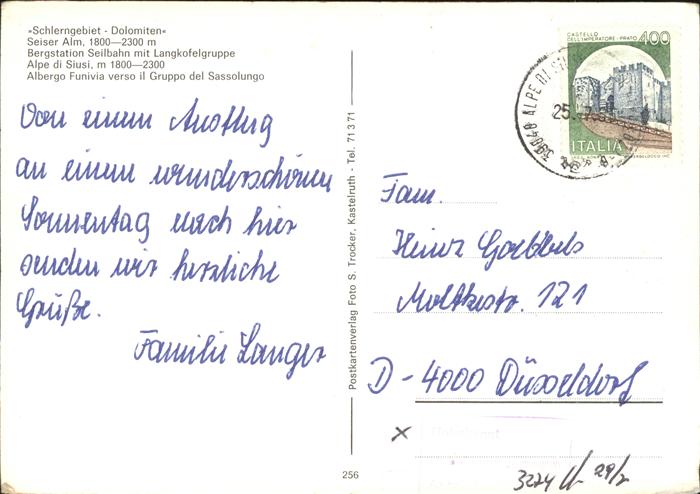 »Schlerngebiet - Dolomiten«
Seiser Alm, 1800—2300 m
Bergstation Seilbahn mit Langkofelgruppe
Alpe di Siusi, m 1800—2300
Albergo Funivia verso il Gruppo del Sassolungo
Von einem Ausflug
an einem wunderschönen
Sonnentag nach hier
senden wir herzliche
Grüße.
Familie Langer
Postkartenverlag Foto S. Trocker, Kastelruth - Tel. 71371
256
CASTELLO
DELL'IMPERATORE - PRATO
400
ITALIA
39040 ALPE DI
25.
Fam.
Heinz Goebbels
Moltkestr. 121
D-4000 Düsseldorf
x
3224
29/2